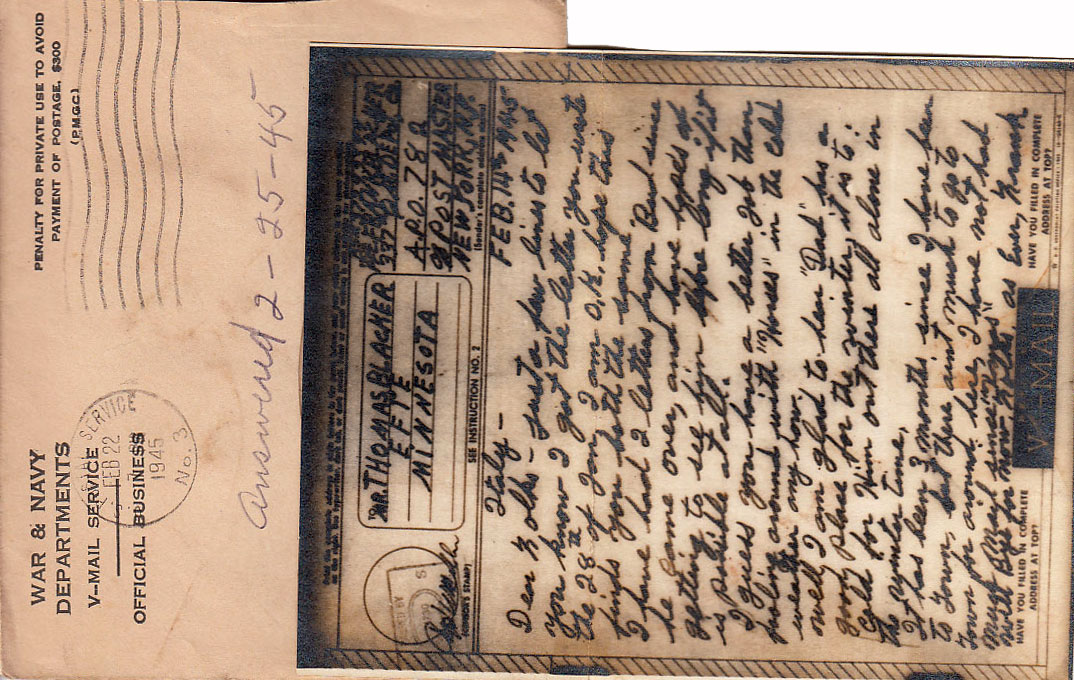 WAR & NAVY
DEPARTMENTS
V-MAIL SERVICE
OFFICIAL BUSINESS
PENALTY FOR PRIVATE USE TO AVOID
PAYMENT OF POSTAGE, $300
(P.M.G.C.)
SERVICE
FEB 22
1945
No. 3
Answered 2-25-45
(CENSOR'S STAMP)
To MR. THOMAS BLACHER
EFFIE
MINNESOTA
SEE INSTRUCTION NO. 2
337
A.P.O. 782
% POST MASTER
NEW YORK, N.Y.
(Sender's complete address above)
Italy - FEB. 14th 1945
Dear Folks - Just a few lines to let
you know I got the letter you wrote
the 28th of Jan. I am O.K. hope this
finds you both the same.
I have had 2 letters from Bud since
he came over, and have hopes of
getting to see him before long if it
is posible at all.
I guess you have a better job than
fooling around with "Horses" in the cold
weather any how.
Well I am glad to hear "Dad" has a
good place for the winter, it is to
Cold for Him out there all alone in
the winter time,
It has been 3 months since I have been
to Town, but there aint much to go to
Town for around here, I have not had
much Mail since
will Close for now as Ever, Frank
HAVE YOU FILLED IN COMPLETE
ADDRESS AT TOP?
V-MAIL
HAVE YOU FILLED IN COMPLETE
ADDRESS AT TOP?